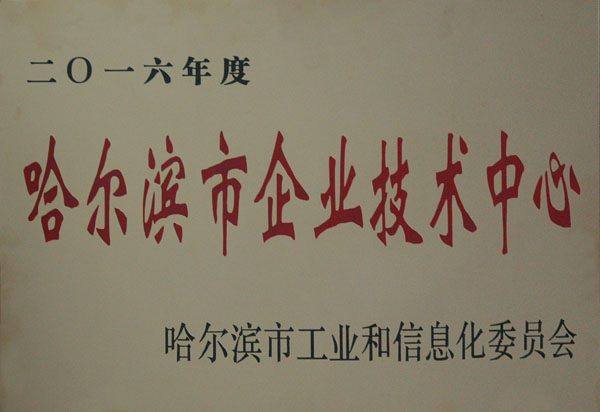 二〇一六年度
哈尔滨市企业技术中心
哈尔滨市工业和信息化委员会